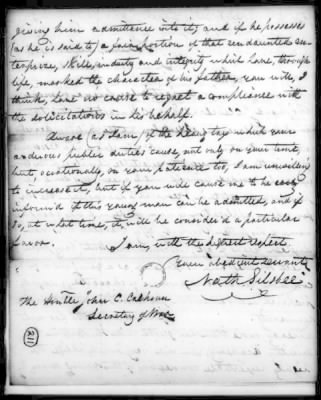 giving him admittance into it; and if he possesses
(as he is said to) a fair portion of that undaunted en-
terprise, skill, industry and integrity which have, through
life, marked the character of his father, you will, I
think, have no cause to regret a compliance with
the solicitations in his behalf.
Aware (as I am) of the heavy tax which your
arduous public duties cause, not only on your time,
but, occasionally, on your patience too, I am unwilling
to increase it, but if you will cause me to be
inform'd if this young man can be admitted, and if
so, at what time, it will be consider'd a particular
favor.
I am, with the highest respect,
Your obedient servant
Nathl Silsbee
The Honble John C. Calhoun
Secretary of War